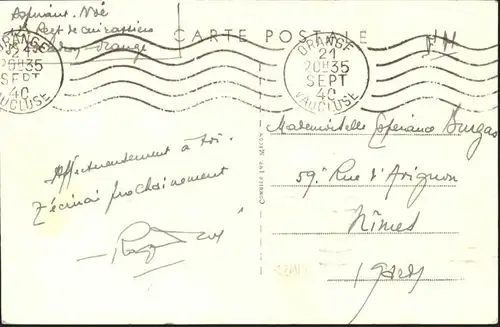 Aspirant Noé
Régt de cuirassiers
Orange
CARTE POSTALE
ORANGE
21
20H35
SEPT
40
VAUCLUSE
ORANGE
20H35
SEPT
40
VAUCLUSE
Mademoiselle Espérance
59, Rue d'Avignon
Nîmes
Gard
Affectueusement à toi.
T'écrirai prochainement